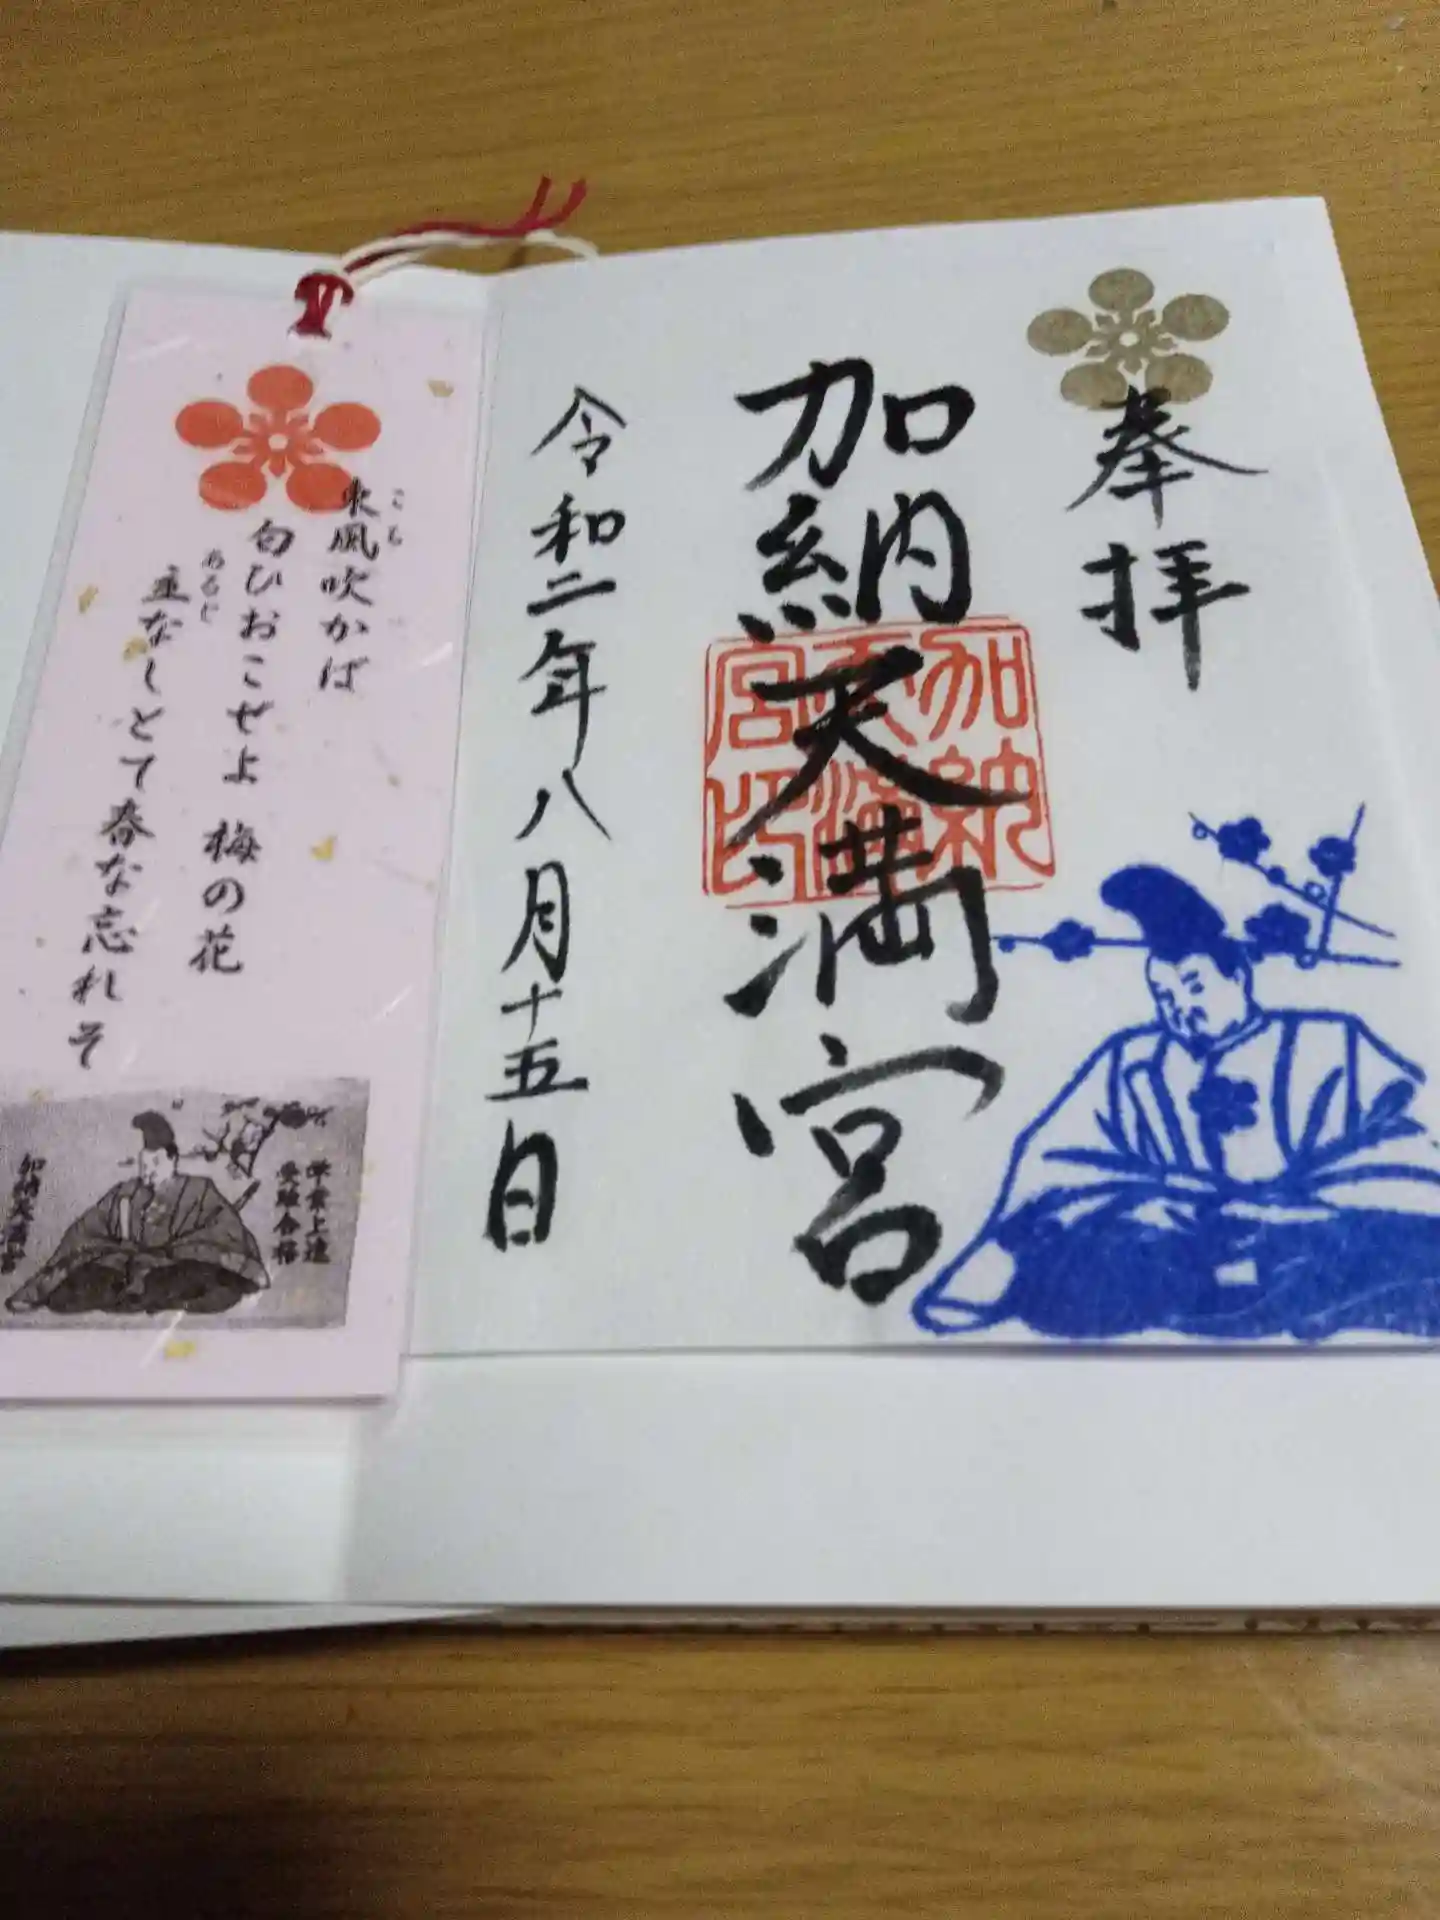 奉拝
加納天満宮
加納
天満
宮印
令和二年八月十五日
東風吹かば
こち
匂ひおこせよ 梅の花
あるじ
主なしとて春な忘れそ
学業上達
受験合格
加納天満宮